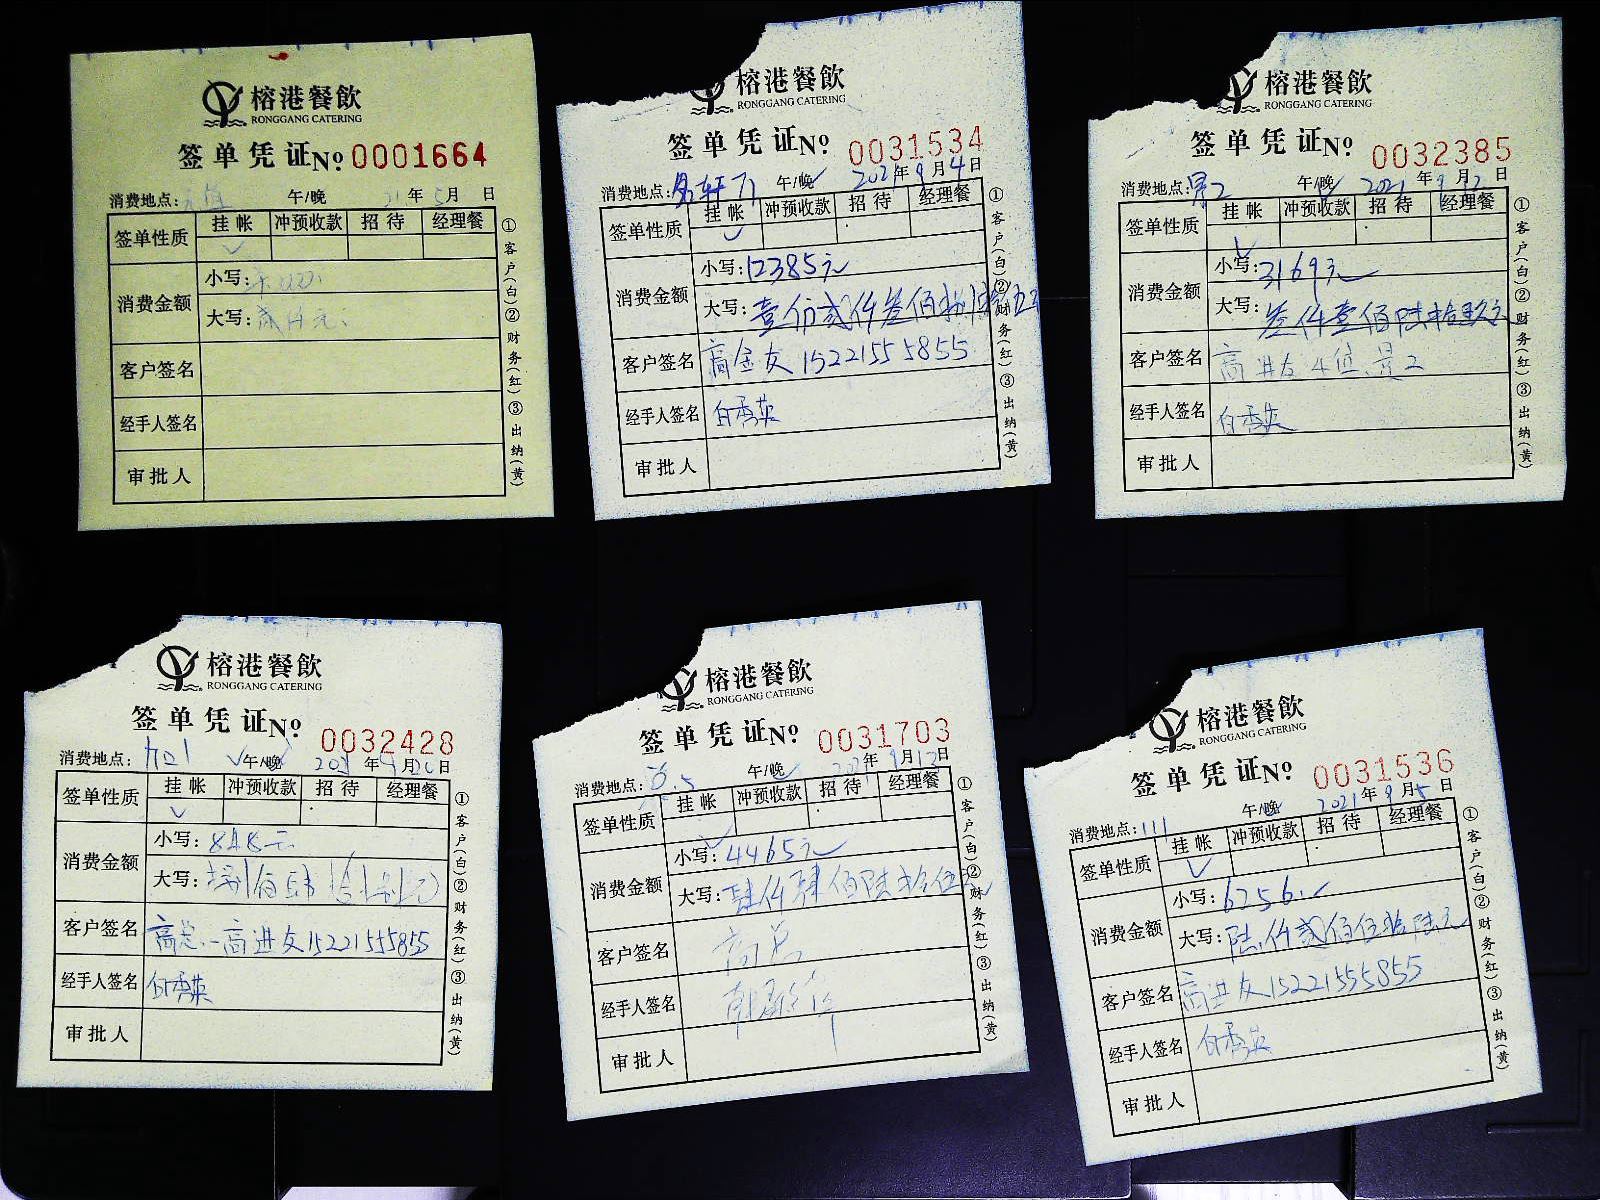 榕港餐飲
RONGGANG CATERING
签单凭证No 0001664
消费地点: 午/晚 21年5月 日
签单性质 挂帐 冲预收款 招待 经理餐
消费金额 小写:
大写:
客户签名
经手人签名
审批人
①客户(白)②财务(红)③出纳(黄)
榕港餐飲
RONGGANG CATERING
签单凭证No 0031534
消费地点: 午/晚 2021年9月4日
签单性质 挂帐 冲预收款 招待 经理餐
消费金额 小写:12385元
大写:壹仟贰仟叁佰捌拾伍元
客户签名 高金友 15221555855
经手人签名 白秀英
审批人
①客户(白)②财务(红)③出纳(黄)
榕港餐飲
RONGGANG CATERING
签单凭证No 0032385
消费地点:景2 午/晚 2021年9月12日
签单性质 挂帐 冲预收款 招待 经理餐
消费金额 小写:3169元
大写:叁仟壹佰陆拾玖元
客户签名 高进友 4位 景2
经手人签名 白秀英
审批人
①客户(白)②财务(红)③出纳(黄)
榕港餐飲
RONGGANG CATERING
签单凭证No 0032428
消费地点: 午/晚 2021年9月20日
签单性质 挂帐 冲预收款 招待 经理餐
消费金额 小写:858元
大写:捌佰伍拾捌元
客户签名 高总一高进友15221555855
经手人签名 白秀英
审批人
①客户(白)②财务(红)③出纳(黄)
榕港餐飲
RONGGANG CATERING
签单凭证No 0031703
消费地点: 午/晚 2021年9月12日
签单性质 挂帐 冲预收款 招待 经理餐
消费金额 小写:4465元
大写:肆仟肆佰陆拾伍元
客户签名 高总
经手人签名
审批人
①客户(白)②财务(红)③出纳(黄)
榕港餐飲
RONGGANG CATERING
签单凭证No 0031536
消费地点:111 午/晚 2021年9月5日
签单性质 挂帐 冲预收款 招待 经理餐
消费金额 小写:6256
大写:陆仟贰佰伍拾陆元
客户签名 高进友15221555855
经手人签名 白秀英
审批人
①客户(白)②财务(红)③出纳(黄)